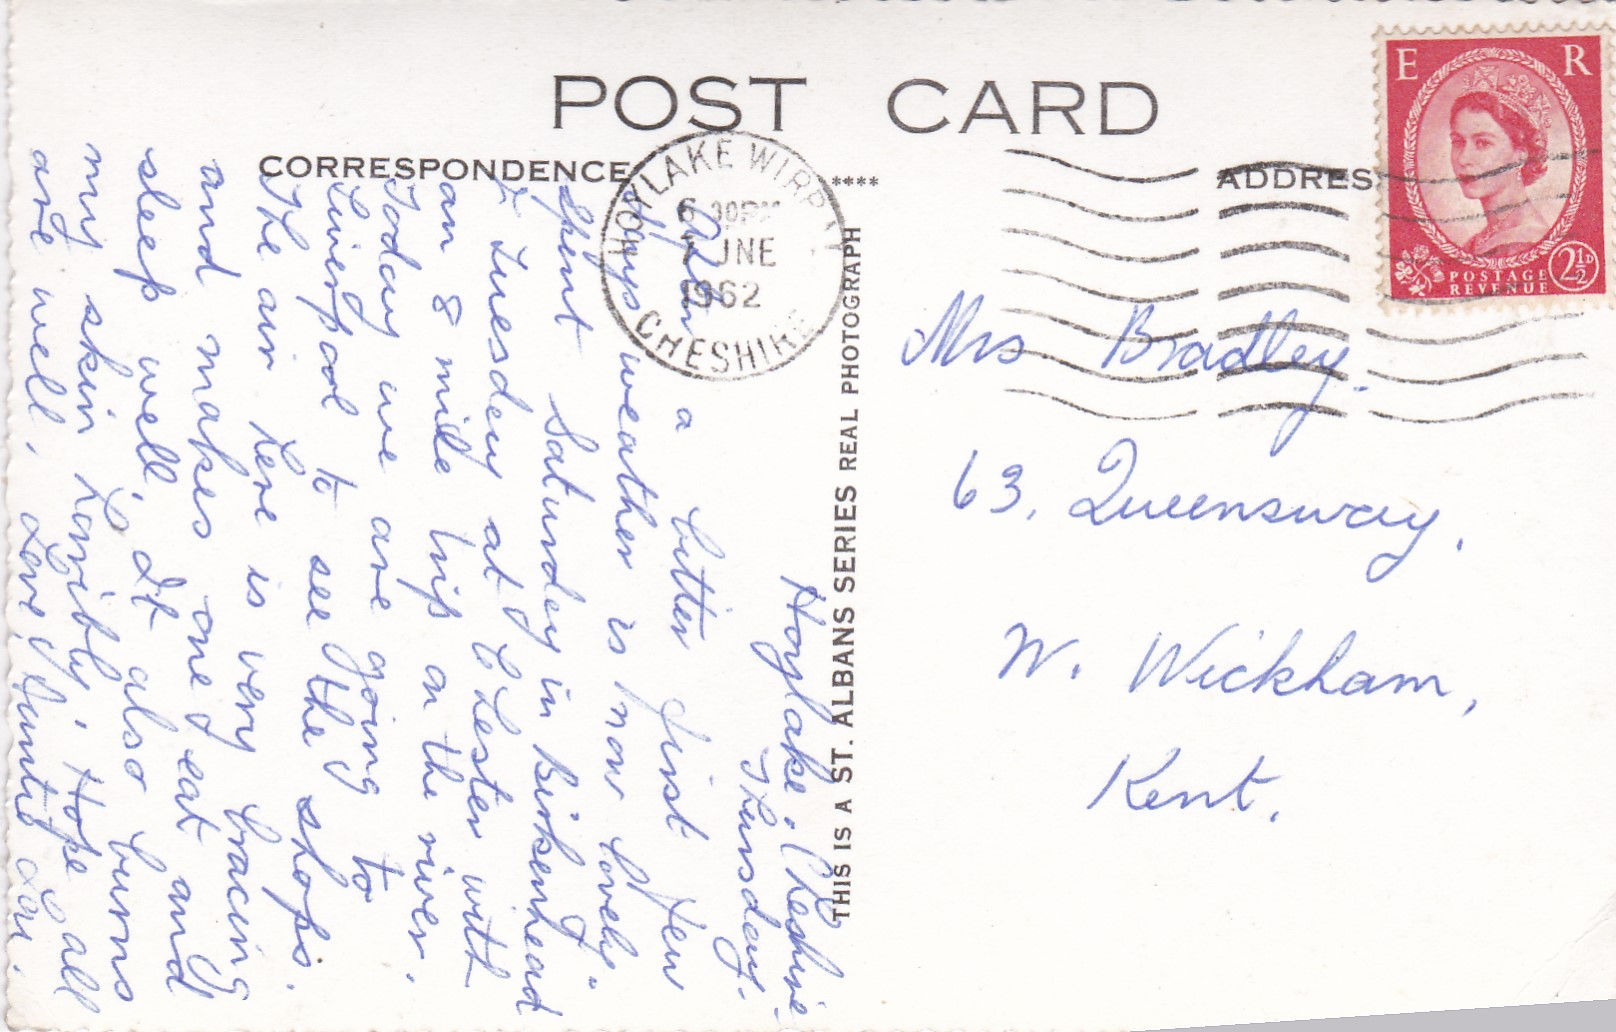 POST CARD
CORRESPONDENCE
****
ADDRES
E R
POSTAGE
REVENUE
2½D
HOYLAKE WIRR
6 30PM
7 JNE
1962
CHESHIRE
THIS IS A ST. ALBANS SERIES REAL PHOTOGRAPH
Hoylake, Cheshire
Thursday.
After a bitter first few
days weather is now lovely.
Spent Saturday in Birkenhead
& Tuesday at Chester with
an 8 mile trip on the river.
Today we are going to
Liverpool to see the shops.
The air here is very bracing
and makes one eat and
sleep well. It also burns
my skin horribly! Hope all
are well. Love, Auntie
Mrs Bradley.
63, Queensway,
W. Wickham,
Kent.